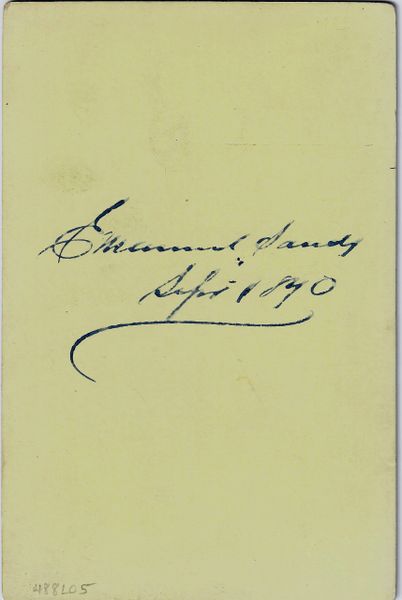 Emanuel Sands
Sept 1890
488L05